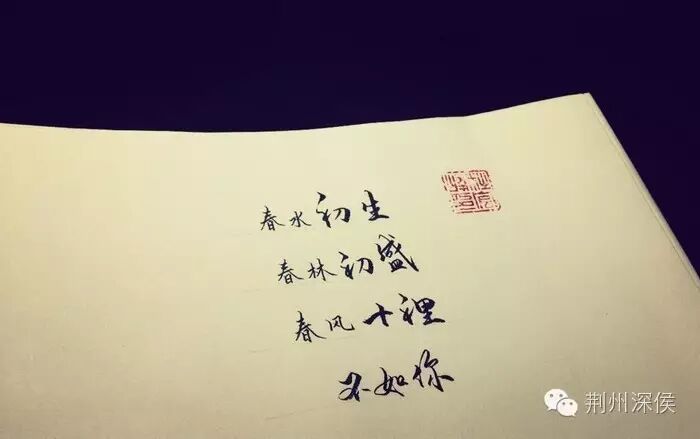 春水初生
春林初盛
春风十裡
不如你
荆州深侯